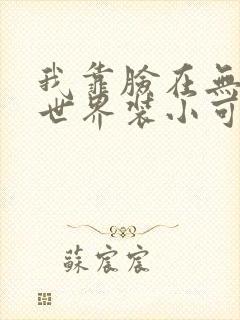 我靠臉在無
世界裝小可
蘇宸宸